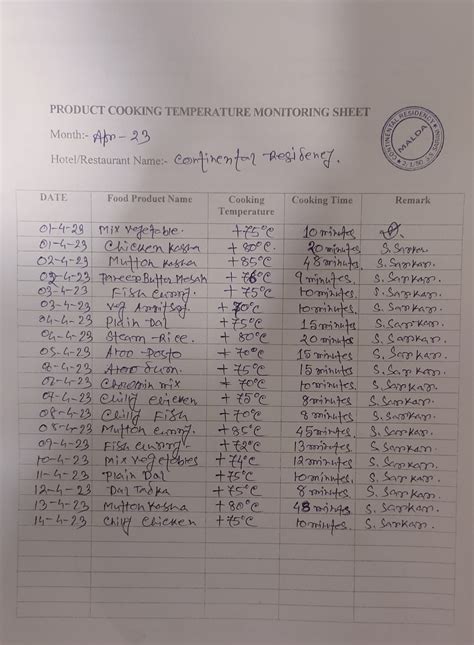 PRODUCT COOKING TEMPERATURE MONITORING SHEET
Month:- Apr - 23
Hotel/Restaurant Name:- Continental Residency.
CONTINENTAL RESIDENCY
MALDA
DATE Food Product Name Cooking Temperature Cooking Time Remark
01-4-23 Mix vegetable. +75°C 10 minutes
01-4-23 Chicken Kasha +80°C. 20 minutes S. Sarkar.
02-4-23 Mutton Kasha +85°C 48 minutes S. Sarkar.
02-4-23 Paneer Button Masah +76°C 9 minutes. S. Sarkar.
03-4-23 Fish Curry. +75°C 10 minutes. S. Sarkar.
03-4-23 Veg +70°C 10 minutes. S. Sarkar.
04-4-23 Plain Dal +75°C 15 minutes S. Sarkar.
04-4-23 Steam-Rice. +80°C 20 minutes S. Sarkar.
05-4-23 Aloo-Posto +70°C 15 minutes S. Sarkar.
Aloo +75°C 15 minutes S. Sarkar.
mix +70°C 10 minutes. S. Sarkar.
07-4-23 Chilly Chicken +75°C 8 minutes S. Sarkar.
08-4-23 Chilly Fish +70°C 8 minutes. S. Sarkar.
08-4-23 Mutton Curry. +85°C 45 minutes. S. Sarkar.
09-4-23 Fish Curry- +72°C 13 minutes. S. Sarkar.
10-4-23 Mix Vegetables +74°C 12 minutes. S. Sarkar.
11-4-23 Plain Dal +75°C 10 minutes. S. Sarkar.
12-4-23 Dal Tadka +75°C 8 minutes. S. Sarkar.
13-4-23 Mutton Kasha +80°C 48 minutes S. Sarkar.
14-4-23 Chilly Chicken +75°C 10 minutes. S. Sarkar.